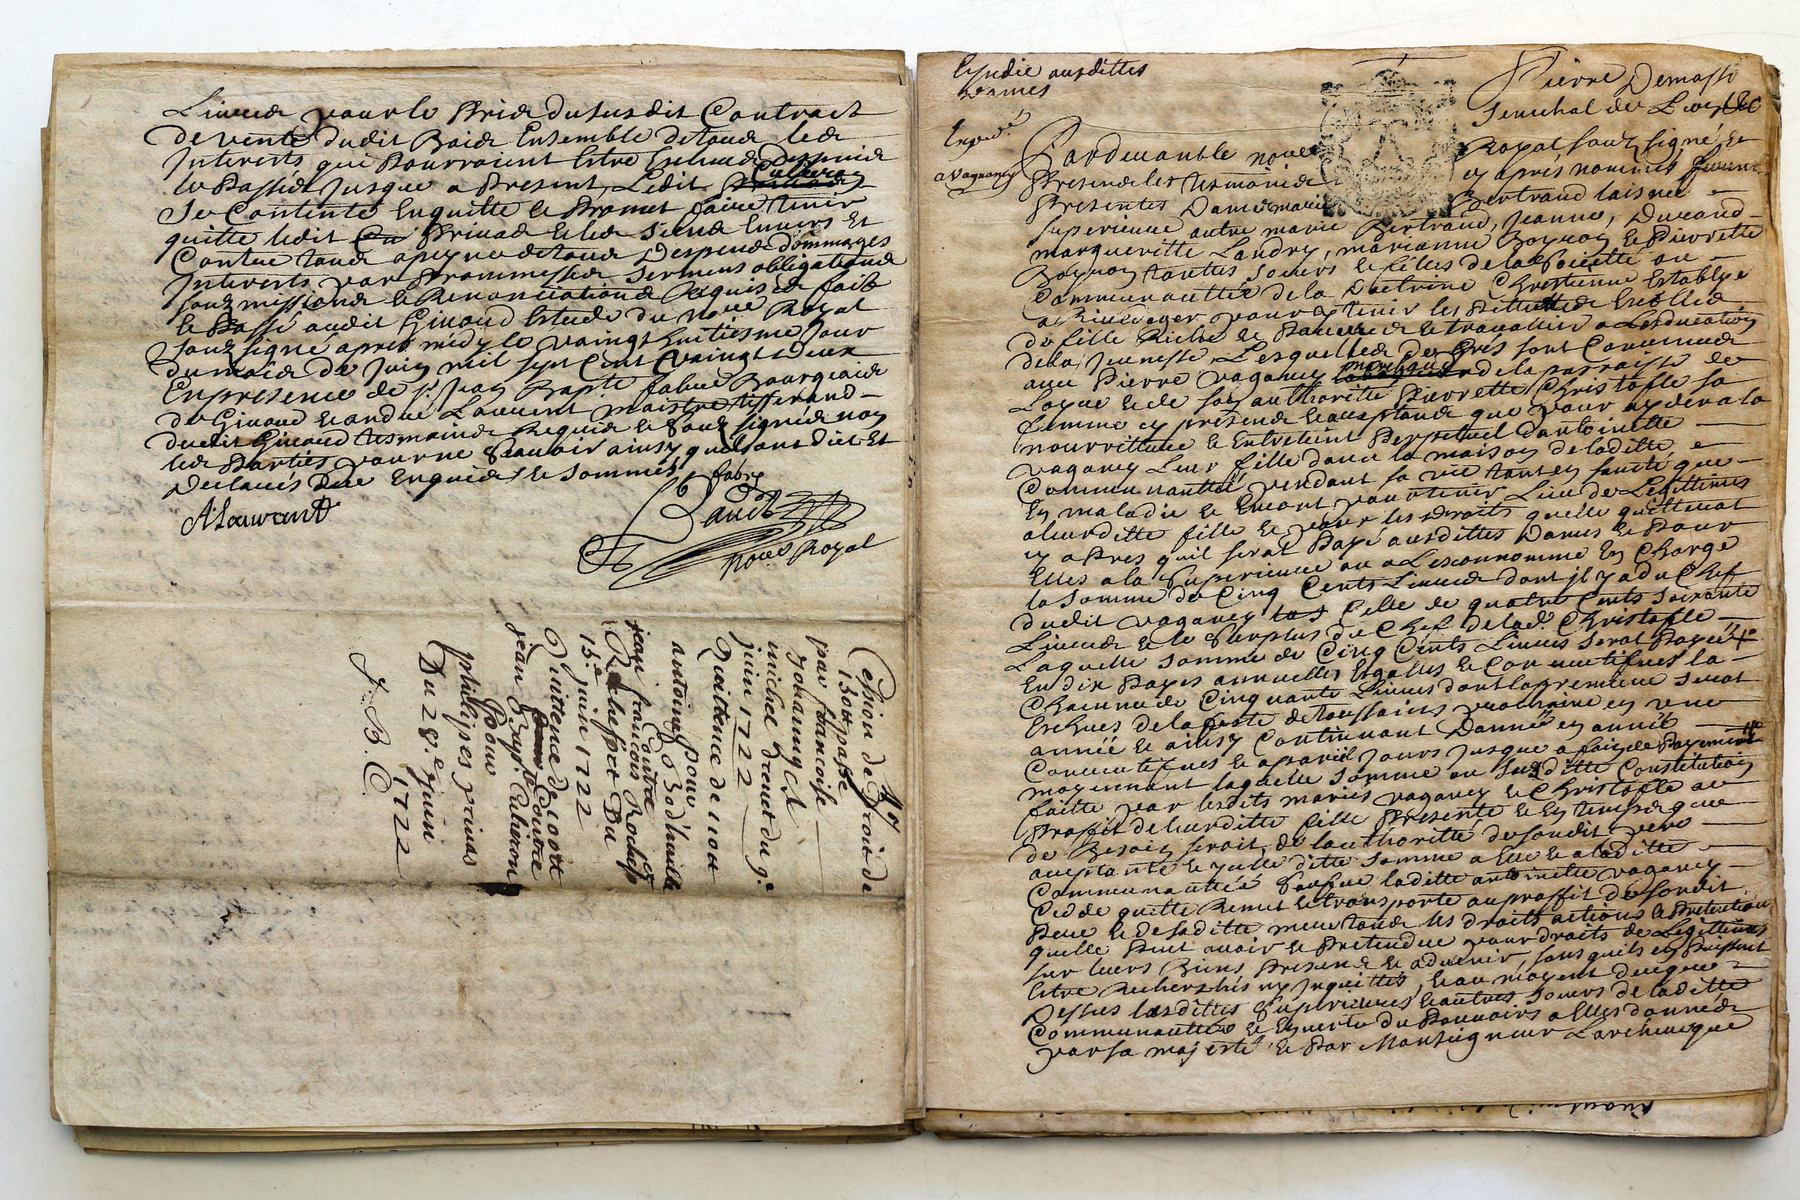 Livres pour le Prix du susdit Contract
de vente dudit Bois Ensemble de tous les
Interests que Pourraient Estre Eschus Depuis
le Passé Jusque a Present, Ledit Culieron
Se Contente Enquitte et Promet faire tenir
quitte ledit Privas et les Siens Envers Et
Contre tous a peyne de tous Despens dommages
Interests par Prommesses Serments obligations
soubzmissions et Renonciations Requises fait
et Passé audit Givaud Estude du Nore Royal
soubzsigné apres midy le vaingt huitiesme Jour
du mois de Juin mil sept Cent vaingt deux
En presence de sr Jean Bapte fabre Bourgeois
de Givaud et andré Laurent maistre tisserand
dudit Givaud tesmoins Requis et soubzsignés non
les Parties pour ne scavoir ainsy quils ont dict et
Declarés Deue Enquis et sommés
fabre
ALaurent
Baudt
nore Royal
Cession de Droit de
1300tt passé
par francoise
michel drenet du 9e
juin 1722
Quittance de 110tt
antoine pour
Contre
jean francois Rochefort Du
15e juin 1722
Quittance de 100tt
Contre
jean Bapt Culieron
Pour
philippes privas
Du 28e juin
1722
J. B. C.
Scindic ausdittes
dames
Exped.
a vaganey
Pierre Demasso
Senechal de Lyon
Pardevant le nore Royal soubzsigné et
Presents les tesmoins cy après nommés furent
Presentes Dame marie Bertrand
Superieure autre marie Bertrand, Jeanne, Durand
margueritte Landry, marianne Boyron et Pierrette
Boyron touttes soeurs et filles de la Societté ou
Communauttée de la Doctrine Chrestienne Establye
a pour tenir les Petittes Escolles
de fille Riche et Pauvre et travailler a Lesducation
de la Jeunesse, Lesquelles de Gres sont Convenues
avec Pierre vaganey mareschal de la parroisse de
et de son authoritté Pierrette Christofle sa
femme cy présents et acceptants que pour ayder a la
nourritture et Entretient Perpetuel dantoinette
vaganey Leur fille dans la maison de laditte
Communauttée pendant sa vie tant en santé que
En maladie et Encore pour tenir Lieu de Legittimes
a leurditte fille et pour les droits quelle quitterat
cy apres quil serat Payé ausdittes Dames et Pour
Elles a la Superieure ou a Lesconnomme En Charge
la Somme de Cinq Cents Livres dont jl y a du Chef
dudit vaganey Celle de quatre Cents soixante
Livres et le Surplus du Chef de lad. Christofle
Laquelle somme de Cinq Cents Livres serat Payée
En dix Payes annuelles Esgalles et Consecutifves la
Chacune de Cinquante Livres dont la premiere serat
Eschues de la feste de toussaints prochaine en une
année et ainsy Continuant Dannée en année
Consecutifves et a pareil Jours Jusque a fain de Payement
moyennant laquelle somme ou susditte Constitution
faitte par lesdits mariés vaganey et Christofle au
Proffit de leurditte fille Presente et En temps que
de Besoin serait, de lauthoritté de sondit Pere
acceptante et jcelle ditte somme a Elle et a laditte
Communauttée sauf que laditte antoinette vaganey
Cedde quitte Remet et transporte au proffit de sondit
Pere et de saditte mere tous les droits actions et Pretentions
quelle Peut avoir et Pretendre pour droits de Legittimes
sur leurs Biens Presens et advenir, sans quils en Puissent
Estre Recherchés ny Inquiettés, Et au moyent de ce que
Dessus lesdittes Superieures et autres soeurs de laditte
Communauttée et En vertu du Pouvoirs a Elles donnés
par sa majesté et Par Monseigneur Larchevesque